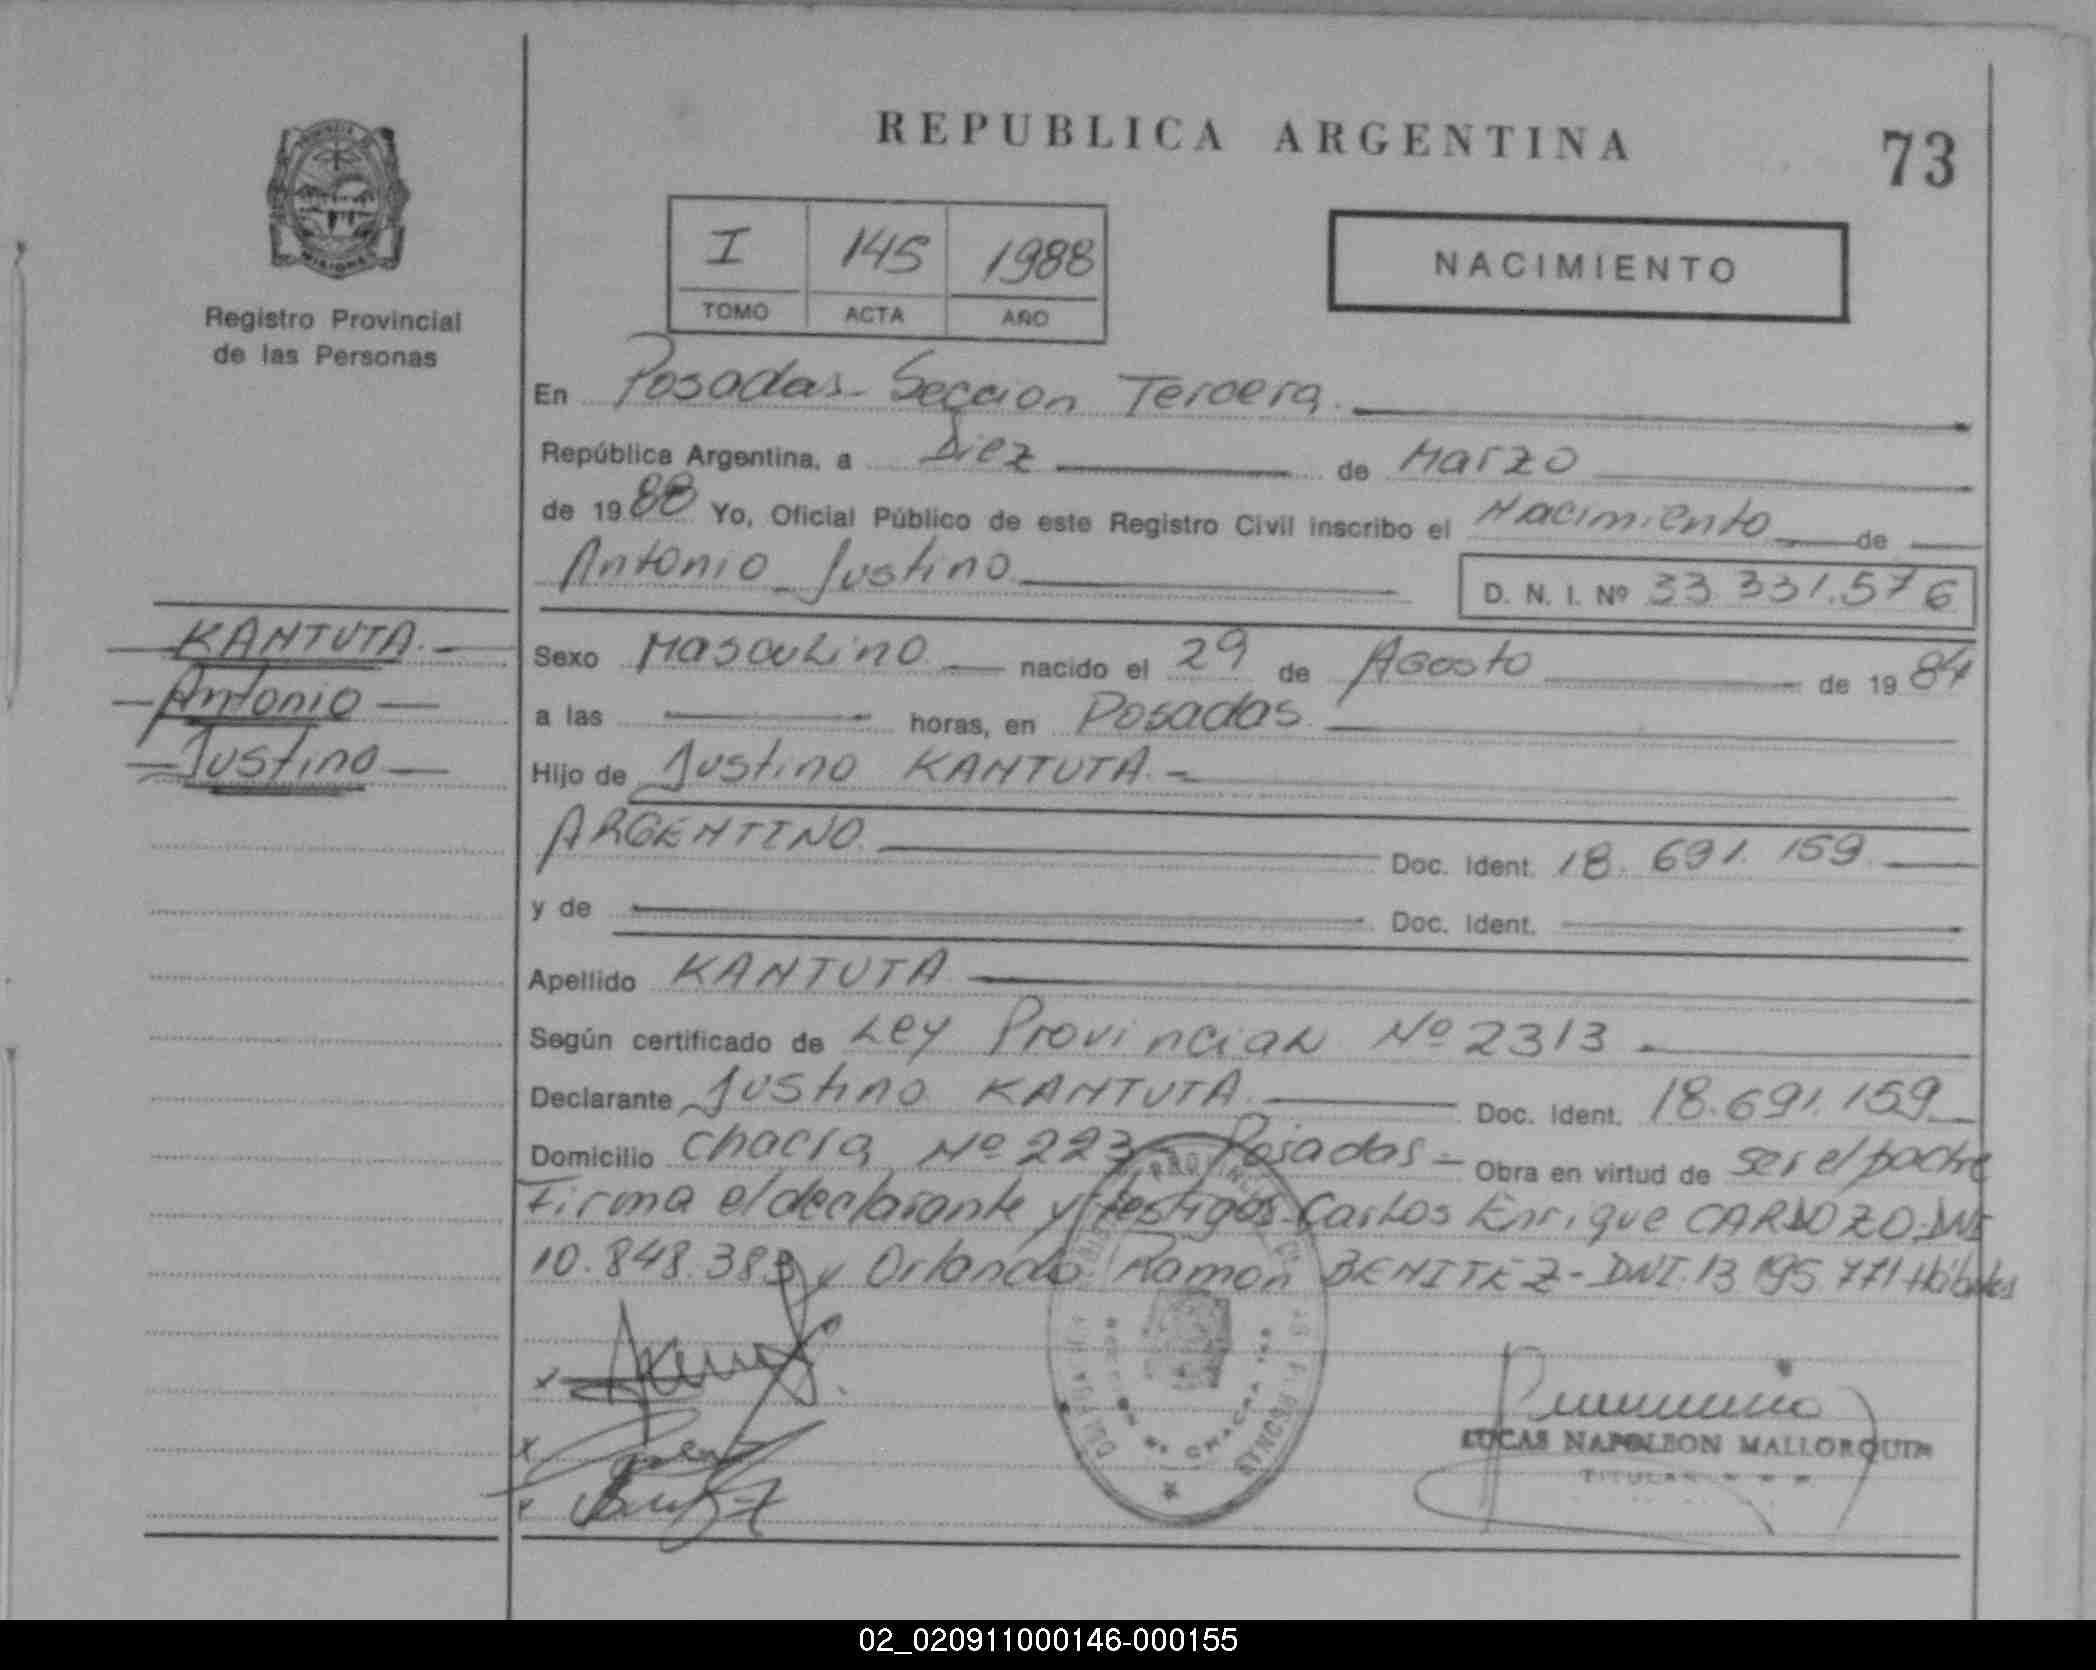 REPUBLICA ARGENTINA
73
I 145 1988
TOMO ACTA AÑO
NACIMIENTO
MISIONES
Registro Provincial
de las Personas
KANTUTA.
Antonio
Justino
En Posadas - Seccion Tercera
República Argentina, a Diez de Marzo
de 1988 Yo, Oficial Público de este Registro Civil inscribo el Nacimiento de
Antonio Justino
D. N. I. Nº 33.331.576
Sexo Masculino nacido el 29 de Agosto de 1984
a las horas, en Posadas
Hijo de Justino KANTUTA.-
ARGENTINO. Doc. Ident. 18.691.159
y de Doc. Ident.
Apellido KANTUTA
Según certificado de Ley Provincial Nº 2313
Declarante Justino KANTUTA. Doc. Ident. 18.691.159
Domicilio Chacra Nº 223 Posadas - Obra en virtud de ser el padre
Firma el declarante y testigos Carlos Enrique CARDOZO-DNI
10.848.383 y Orlando Ramon BENITEZ - DNI.13.195.771 Habiles
LUCAS NAPOLEON MALLORQUIN
TITULAR
02_020911000146-000155